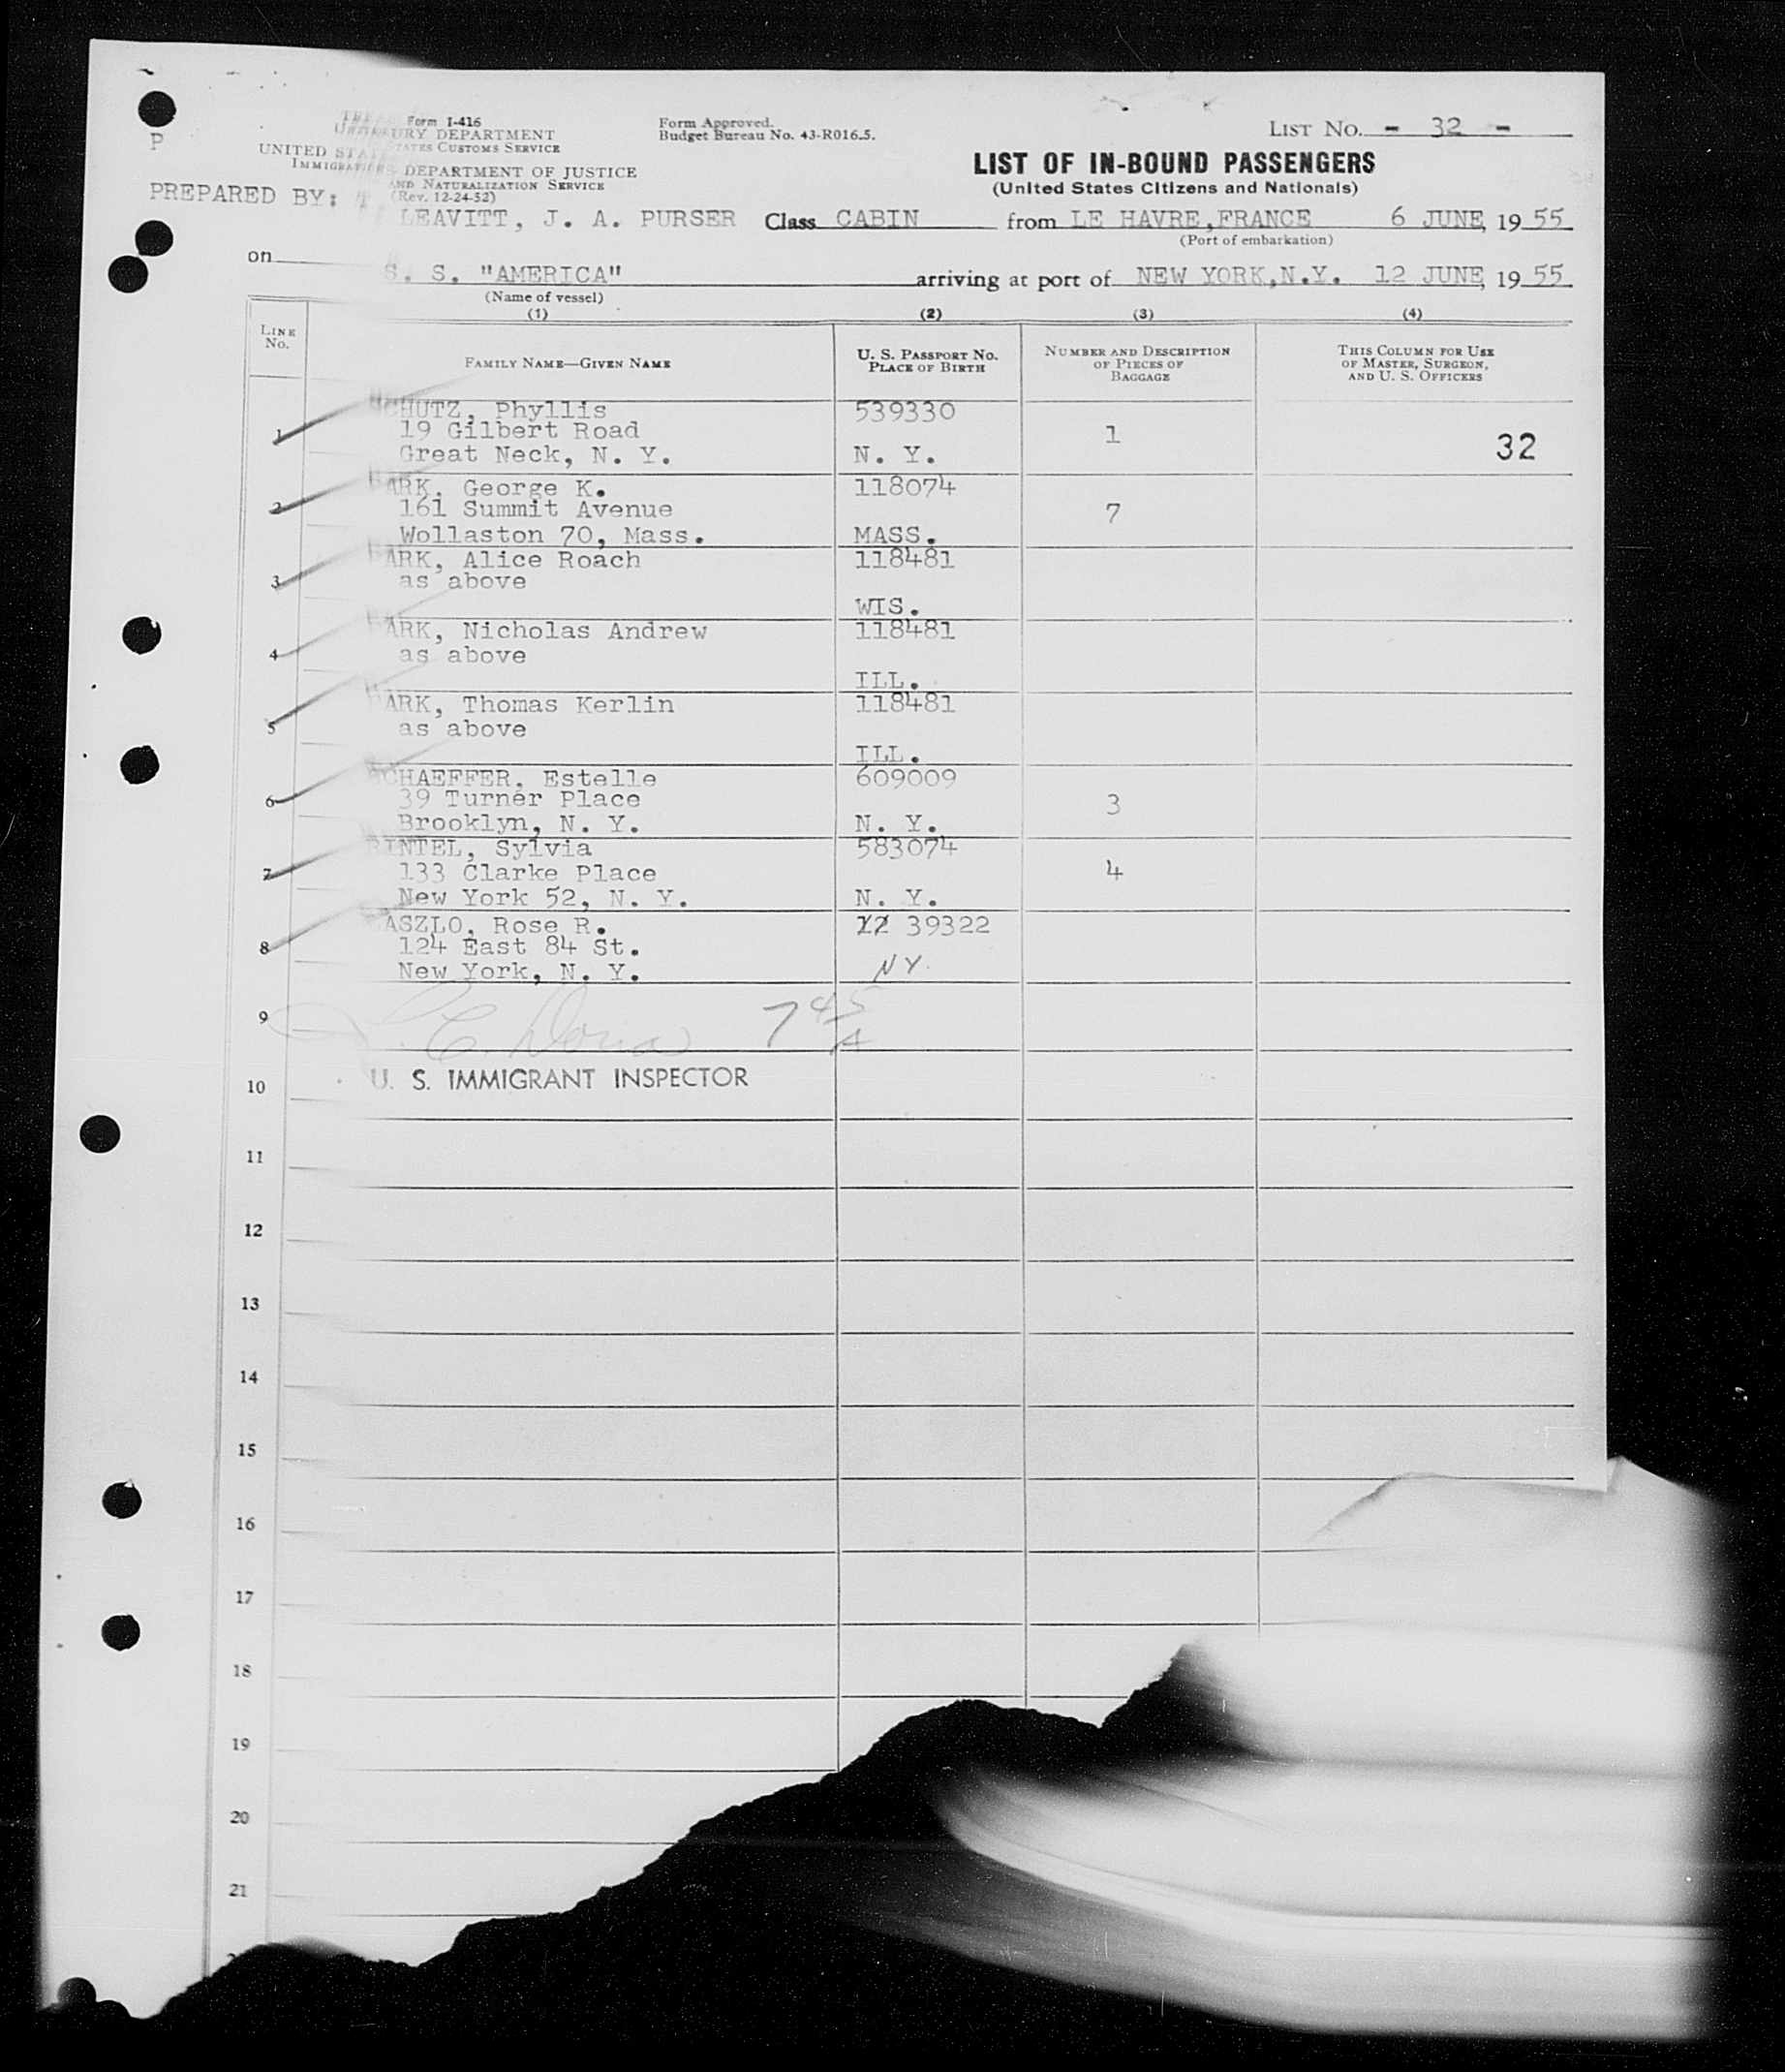 Form I-416
TREASURY DEPARTMENT
UNITED STATES CUSTOMS SERVICE
DEPARTMENT OF JUSTICE
IMMIGRATION AND NATURALIZATION SERVICE
(Rev. 12-24-52)
Form Approved.
Budget Bureau No. 43-R016.5.
LIST NO. - 32 -
LIST OF IN-BOUND PASSENGERS
(United States Citizens and Nationals)
P
PREPARED BY:
LEAVITT, J. A. PURSER Class CABIN from LE HAVRE,FRANCE 6 JUNE, 19 55
(Port of embarkation)
on S. S. "AMERICA" arriving at port of NEW YORK,N.Y. 12 JUNE, 19 55
(Name of vessel)
(1) (2) (3) (4)
LINE No. FAMILY NAME—GIVEN NAME U. S. PASSPORT No. PLACE OF BIRTH NUMBER AND DESCRIPTION OF PIECES OF BAGGAGE THIS COLUMN FOR USE OF MASTER, SURGEON, AND U. S. OFFICERS
1 SCHUTZ, Phyllis 539330
19 Gilbert Road 1 32
Great Neck, N. Y. N. Y.
2 ARK, George K. 118074
161 Summit Avenue 7
Wollaston 70, Mass. MASS.
3 ARK, Alice Roach 118481
as above
WIS.
4 ARK, Nicholas Andrew 118481
as above
ILL.
5 ARK, Thomas Kerlin 118481
as above
ILL.
6 SCHAEFFER, Estelle 609009
39 Turner Place 3
Brooklyn, N. Y. N. Y.
7 INTEL, Sylvia 583074
133 Clarke Place 4
New York 52, N. Y. N. Y.
8 ASZLO, Rose R. 39322
124 East 84 St.
New York, N. Y. NY.
9 7 45/A
10 U. S. IMMIGRANT INSPECTOR
11
12
13
14
15
16
17
18
19
20
21